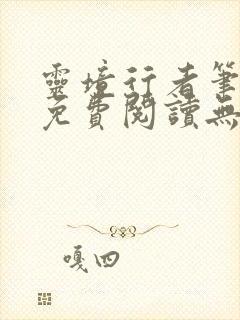 靈境行者筆
免費閱讀無
嘎四